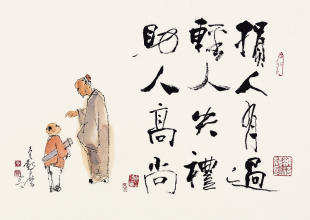 損人有過
輕人失禮
助人高尚